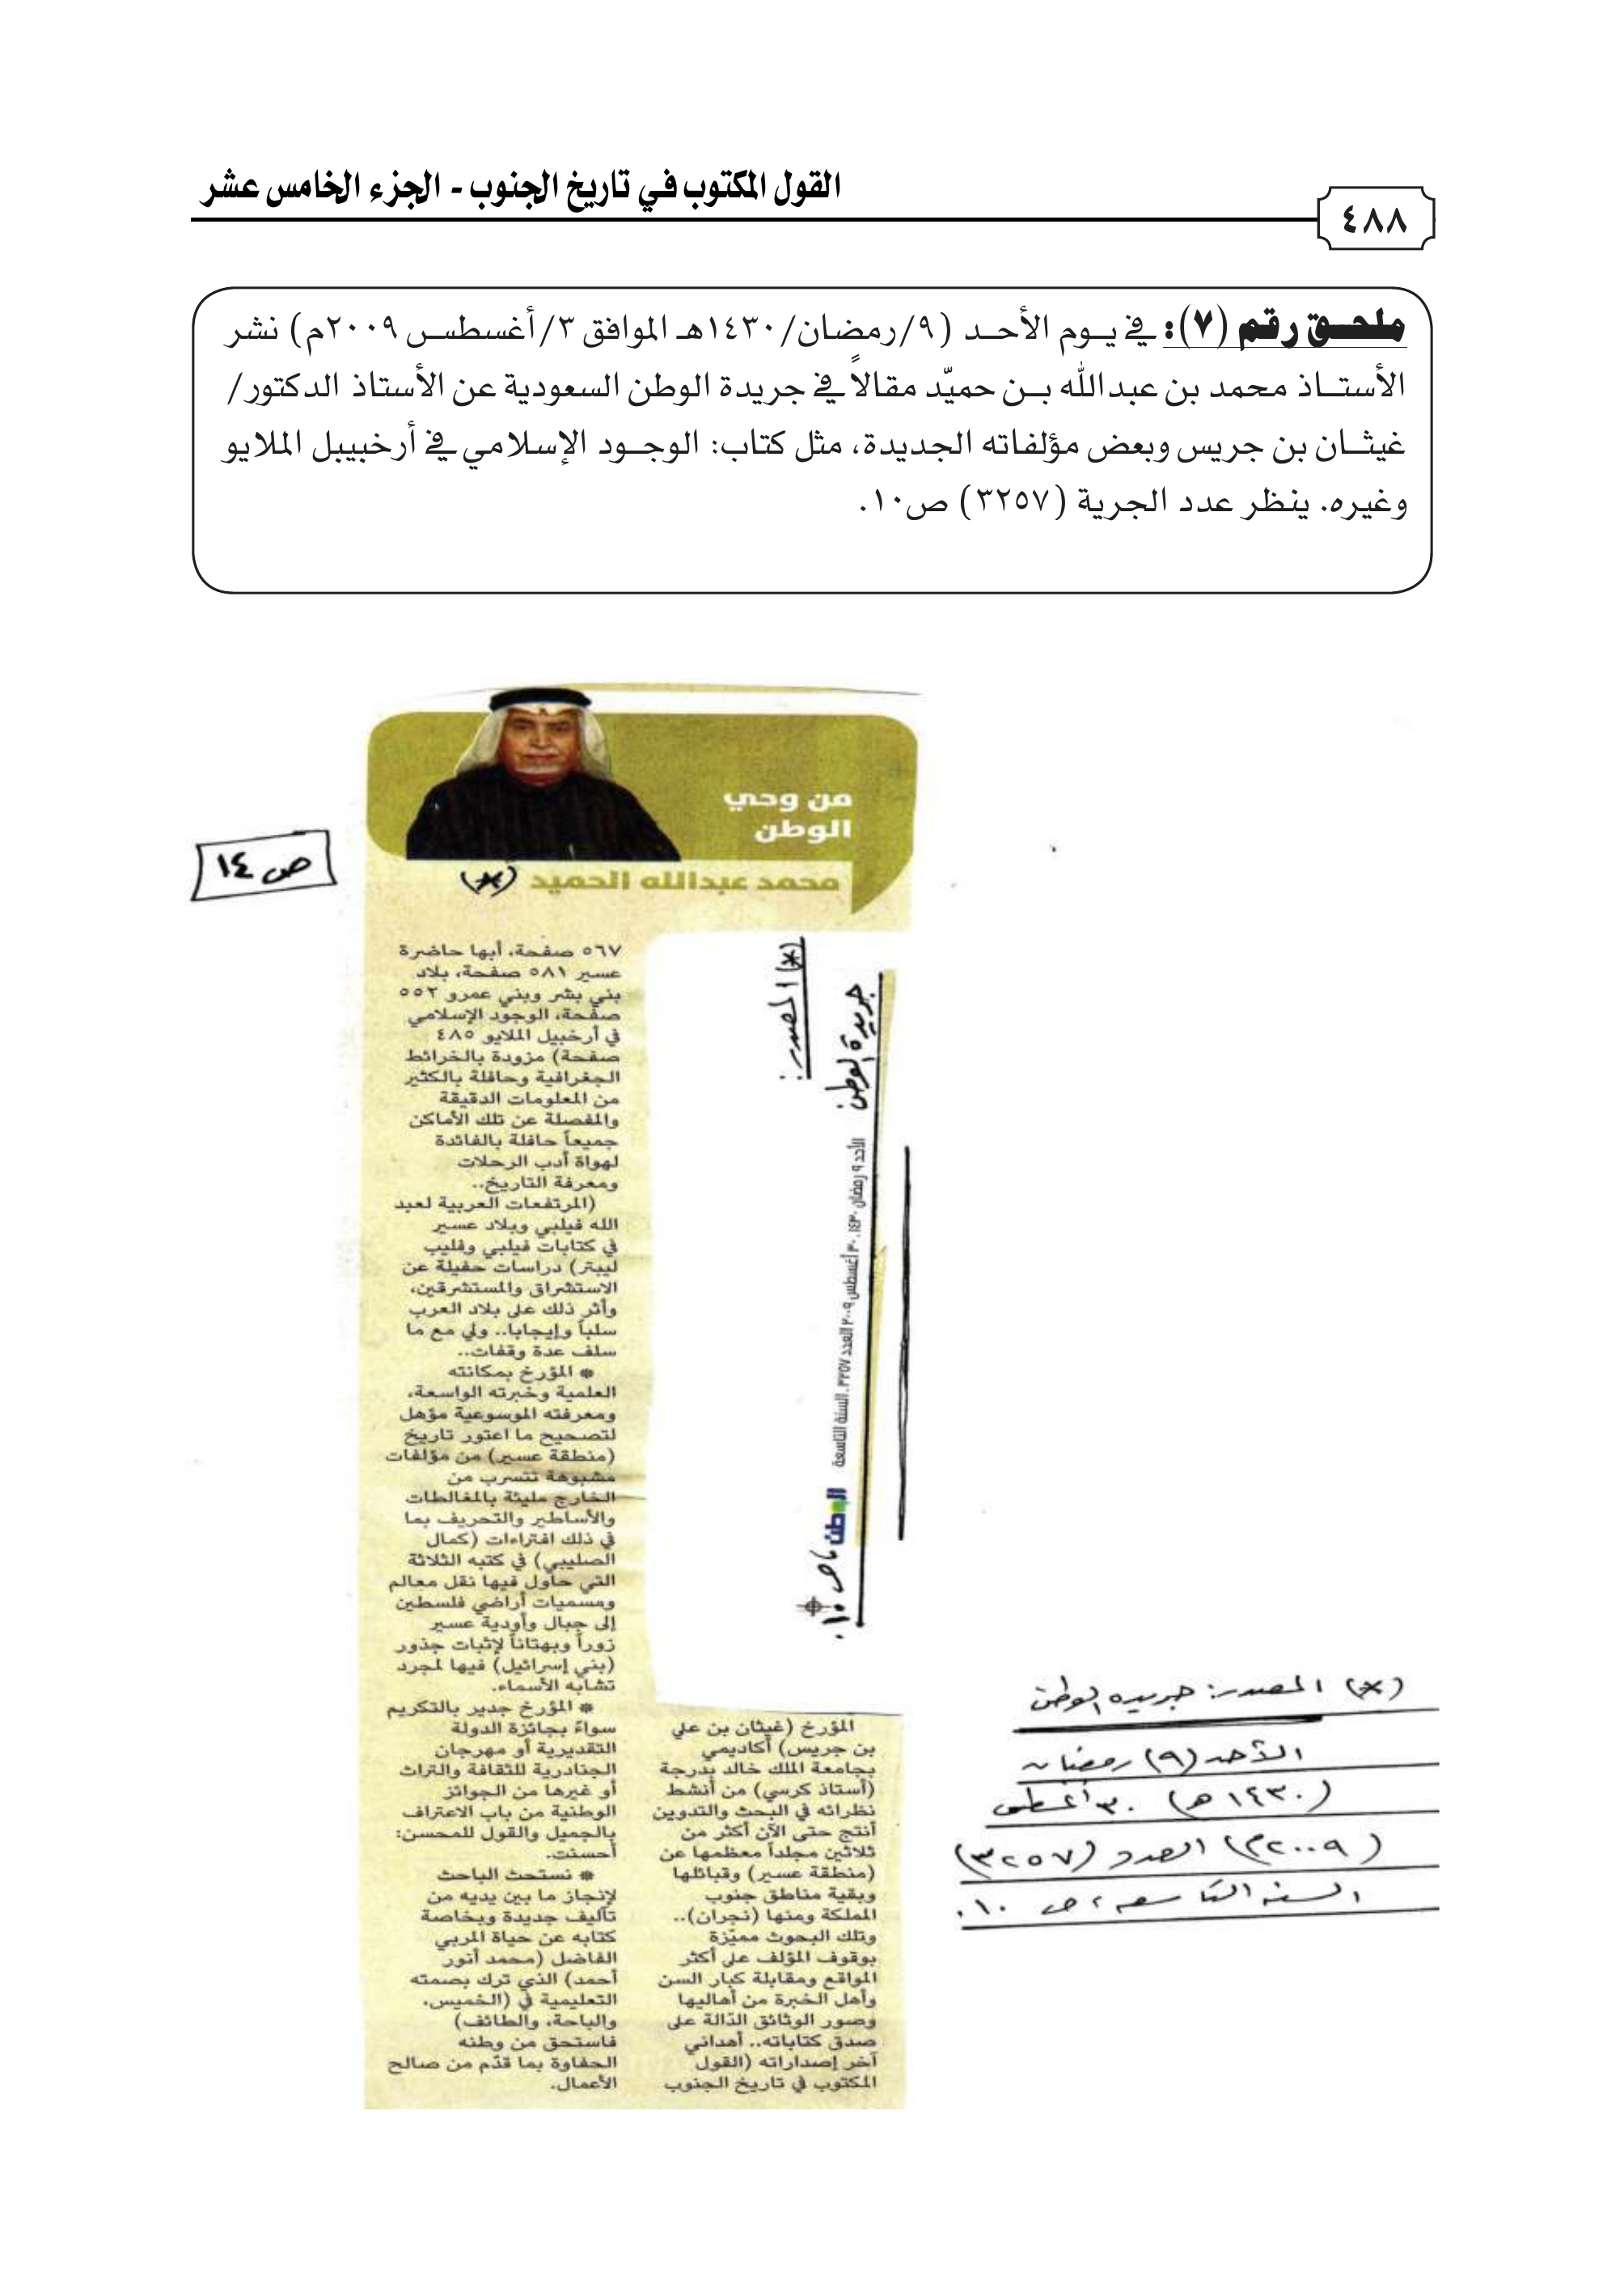 القول المكتوب في تاريخ الجنوب - الجزء الخامس عشر
٤٨٨
ملحق رقم (٧): في يوم الأحد (٩/رمضان/١٤٣٠هـ الموافق ٣/أغسطس ٢٠٠٩م) نشر
الأستاذ محمد بن عبدالله بن حميّد مقالاً في جريدة الوطن السعودية عن الأستاذ الدكتور/
غيثان بن جريس وبعض مؤلفاته الجديدة، مثل كتاب: الوجود الإسلامي في أرخبيبل الملايو
وغيره. ينظر عدد الجرية (٣٢٥٧) ص١٠.
من وحي
الوطن
محمد عبدالله الحميد (*)
ص ١٤
(*) المصدر:
جريدة الوطن
الأحد ٩ رمضان ١٤٣٠ . ٣٠ أغسطس ٢٠٠٩ العدد ٣٢٥٧ . السنة التاسعة
الوطن
ص ١٠.
المؤرخ (غيثان بن علي
بن جريس) أكاديمي
بجامعة الملك خالد بدرجة
(أستاذ كرسي) من أنشط
نظرائه في البحث والتدوين
أنتج حتى الآن أكثر من
ثلاثين مجلداً معظمها عن
(منطقة عسير) وقبائلها
وبقية مناطق جنوب
المملكة ومنها (نجران)..
وتلك البحوث مميّزة
بوقوف المؤلف على أكثر
المواقع ومقابلة كبار السن
وأهل الخبرة من أهاليها
وصور الوثائق الدّالة على
صدق كتاباته.. أهداني
آخر إصداراته (القول
المكتوب في تاريخ الجنوب
٥٦٧ صفحة، أبها حاضرة
عسير ٥٨١ صفحة، بلاد
بني بشر وبني عمرو ٥٥٢
صفحة، الوجود الإسلامي
في أرخبيل الملايو ٤٨٥
صفحة) مزودة بالخرائط
الجغرافية وحافلة بالكثير
من المعلومات الدقيقة
والمفصلة عن تلك الأماكن
جميعاً حافلة بالفائدة
لهواة أدب الرحلات
ومعرفة التاريخ..
(المرتفعات العربية لعبد
الله فيلبي وبلاد عسير
في كتابات فيلبي وفليب
ليبتر) دراسات حفيلة عن
الاستشراق والمستشرقين،
وأثر ذلك على بلاد العرب
سلباً وإيجابا.. ولي مع ما
سلف عدة وقفات..
* المؤرخ بمكانته
العلمية وخبرته الواسعة،
ومعرفته الموسوعية مؤهل
لتصحيح ما اعتور تاريخ
(منطقة عسير) من مؤلفات
مشبوهة تتسرب من
الخارج مليئة بالمغالطات
والأساطير والتحريف بما
في ذلك افتراءات (كمال
الصليبي) في كتبه الثلاثة
التي حاول فيها نقل معالم
ومسميات أراضي فلسطين
إلى جبال وأودية عسير
زوراً وبهتاناً لإثبات جذور
(بني إسرائيل) فيها لمجرد
تشابه الأسماء.
* المؤرخ جدير بالتكريم
سواءً بجائزة الدولة
التقديرية أو مهرجان
الجنادرية للثقافة والتراث
أو غيرها من الجوائز
الوطنية من باب الاعتراف
بالجميل والقول للمحسن:
أحسنت.
* نستحث الباحث
لإنجاز ما بين يديه من
تآليف جديدة وبخاصة
كتابه عن حياة المربي
الفاضل (محمد أنور
أحمد) الذي ترك بصمته
التعليمية في (الخميس،
والباحة، والطائف)
فاستحق من وطنه
الحفاوة بما قدّم من صالح
الأعمال.
(*) المصدر: جريدة الوطن
الأحد (٩) رمضان
(١٤٣٠هـ) ٣٠ أغسطس
(٢٠٠٩م) العدد (٣٢٥٧)
السنة التاسعة، ص ١٠.